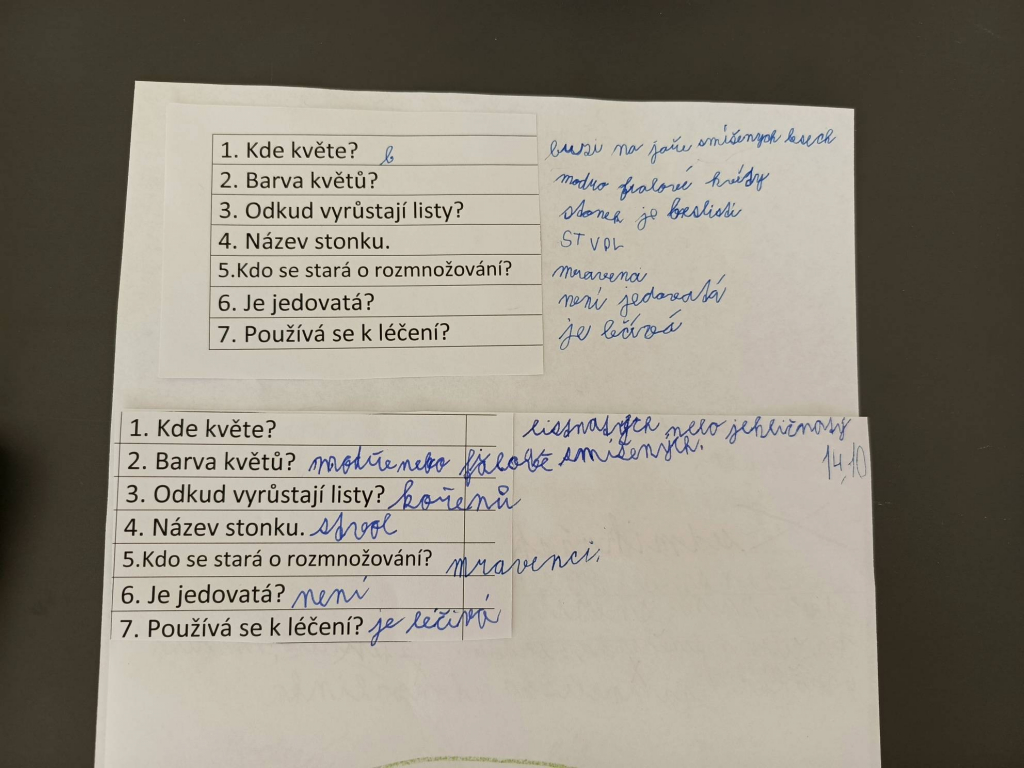 1. Kde květe? b buzi na jaře smíšených lesech
2. Barva květů? modro fialové květy
3. Odkud vyrůstají listy? stonek je bezlistí
4. Název stonku. STVOL
5.Kdo se stará o rozmnožování? mravenci
6. Je jedovatá? není jedovatá
7. Používá se k léčení? je léčivá
1. Kde květe? listnatých nebo jehličnatý
smíšených.
2. Barva květů? modře nebo fialově
14,10
3. Odkud vyrůstají listy? kořenů
4. Název stonku. stvol
5.Kdo se stará o rozmnožování? mravenci.
6. Je jedovatá? není
7. Používá se k léčení? je léčivá